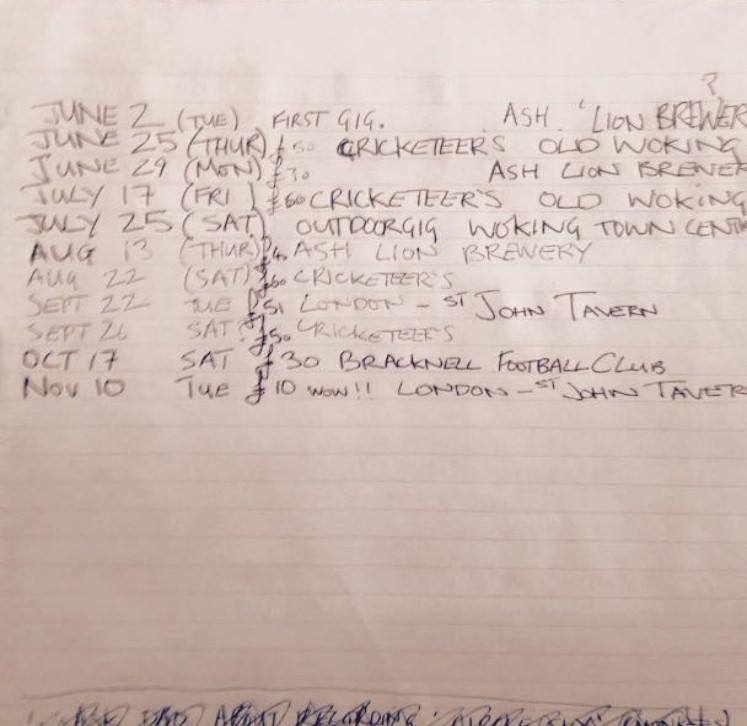 ?
JUNE 2 (TUE) FIRST GIG. ASH 'LION BREWER
JUNE 25 (THUR) £50 CRICKETEER'S OLD WOKING
JUNE 29 (MON) £30 ASH LION BREWER
JULY 17 (FRI) £60 CRICKETEER'S OLD WOKING
JULY 25 (SAT) OUTDOOR GIG WOKING TOWN CENT
AUG 13 (THUR) ASH LION BREWERY
AUG 22 (SAT) £60 CRICKETEER'S
SEPT 22 TUE £51 LONDON - ST JOHN TAVERN
SEPT 26 SAT? £50 CRICKETEER'S
OCT 17 SAT £30 BRACKNELL FOOTBALL CLUB
NOV 10 TUE £10 WOW!! LONDON - ST JOHN TAVER